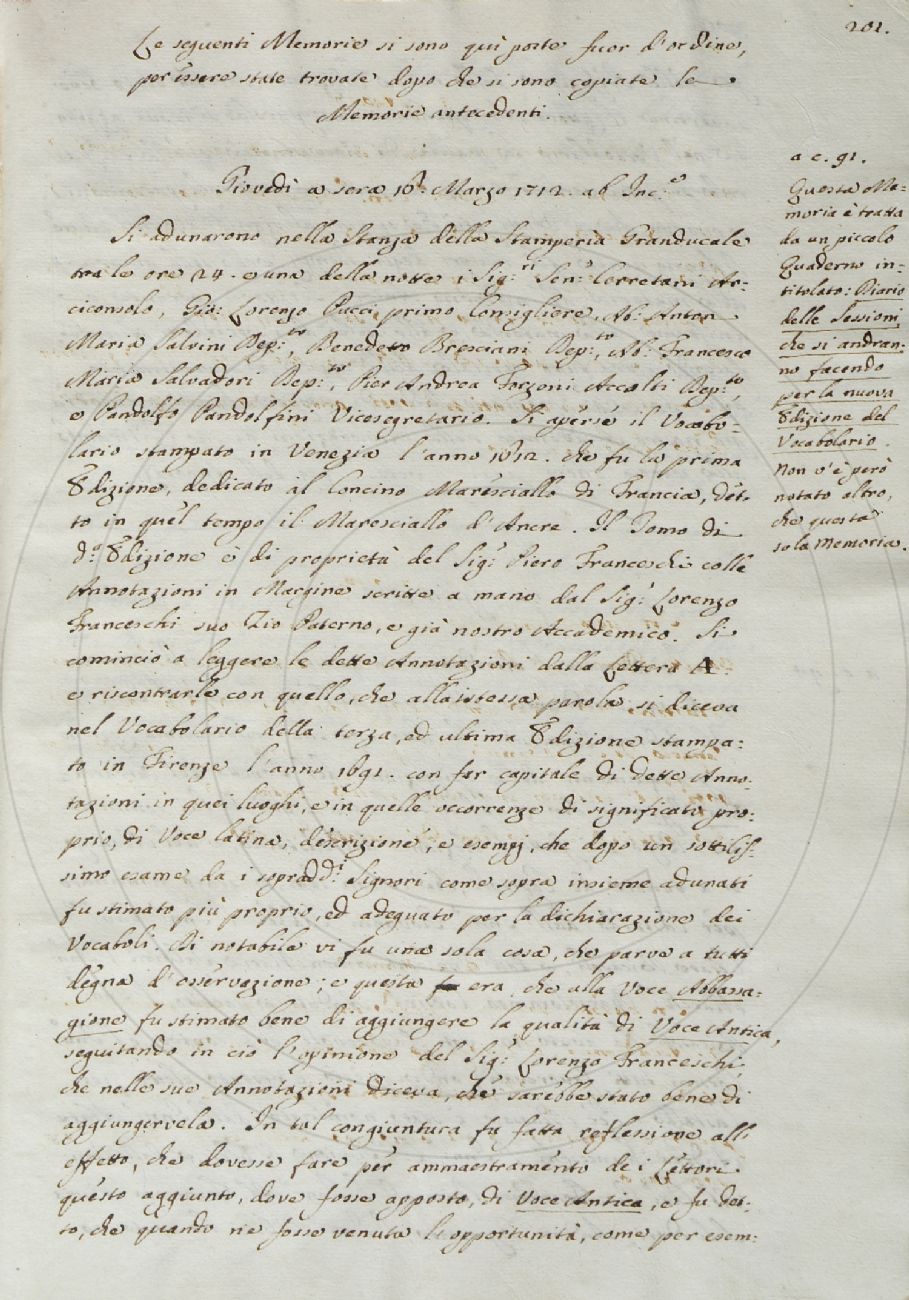 201.
Le seguenti Memorie si sono quì poste fuor d'ordine,
per essere state trovate dopo che si sono copiate le
Memorie antecedenti.
a c. 91.
Questa Me-
moria è tratta
da un piccolo
Quaderno in-
titolato: Diario
delle Sessioni,
che si andran-
no facendo
per la nuova
Edizione del
Vocabolario.
Non v'è però
notato altro,
che questa
sola Memoria.
Giovedì a sera 16. Marzo 1712. ab Inc.e
Si adunarono nella Stanza della Stamperia Granducale
tra le ore 24. e una della notte i Sig:ri Sen.e Cerretani Ar-
ciconsolo, Gio: Lorenzo Pucci primo Consigliere, Ab: Anton
Maria Salvini Dep:to, Benedetto Bresciani Dep:to, Ab: Francesco
Maria Salvadori Dep:to, Pier Andrea Forzoni Accolti Dep:to,
e Pandolfo Pandolfini Vicesegretario. Si aperse il Vocabo-
lario stampato in Venezia l'anno 1612. che fu la prima
Edizione, dedicato al Concino Maresciallo di Francia, det-
to in quel tempo il Maresciallo d'Ancre. Il Tomo di
d.a Edizione è di proprietà del Sig: Piero Franceschi colle
Annotazioni in Margine scritte a mano dal Sig: Lorenzo
Franceschi suo Zio Paterno, e già nostro Accademico. Si
cominciò a leggere le dette Annotazioni dalla Lettera A.
e riscontrarle con quello, che alla istessa parola si diceva
nel Vocabolario della terza, ed ultima Edizione stampa-
to in Firenze l'anno 1691. con far capitale di dette Anno-
tazioni in quei luoghi, e in quelle occorrenze di significato pro-
prio, di Voce latina, descrizione, e esempj, che dopo un sottilis-
simo esame da i sopradd.i Signori come sopra insieme adunati
fu stimato più proprio, ed adeguato per la dichiarazione dei
Vocaboli. Di notabile vi fu una sola cosa, che parve a tutti
degna d'osservazione; e questa era, che alla Voce Abbassa-
gione fu stimato bene di aggiungere la qualità di Voce Antica,
seguitando in ciò l'opinione del Sig: Lorenzo Franceschi,
che nelle sue Annotazioni diceva, che sarebbe stato bene di
aggiungervela. In tal congiuntura fu fatta reflessione all'
effetto, che dovesse fare per ammaestramento de i Lettori
questo aggiunto, dove fosse apposto, di Voce Antica, e fu det-
to, che quando ne fosse venuta l'opportunità, come per esem-